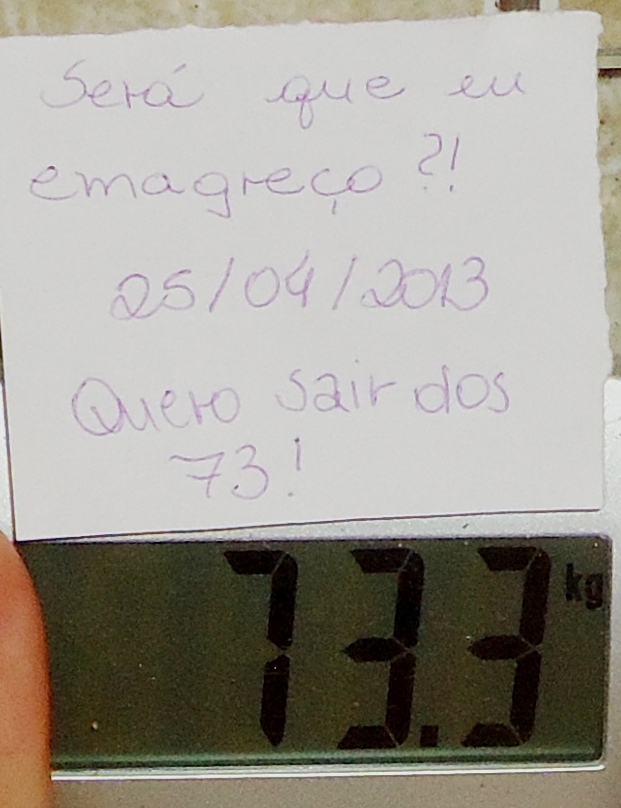 Será que eu
emagreço?!
25/04/2013
Quero sair dos
73!
73.3 kg